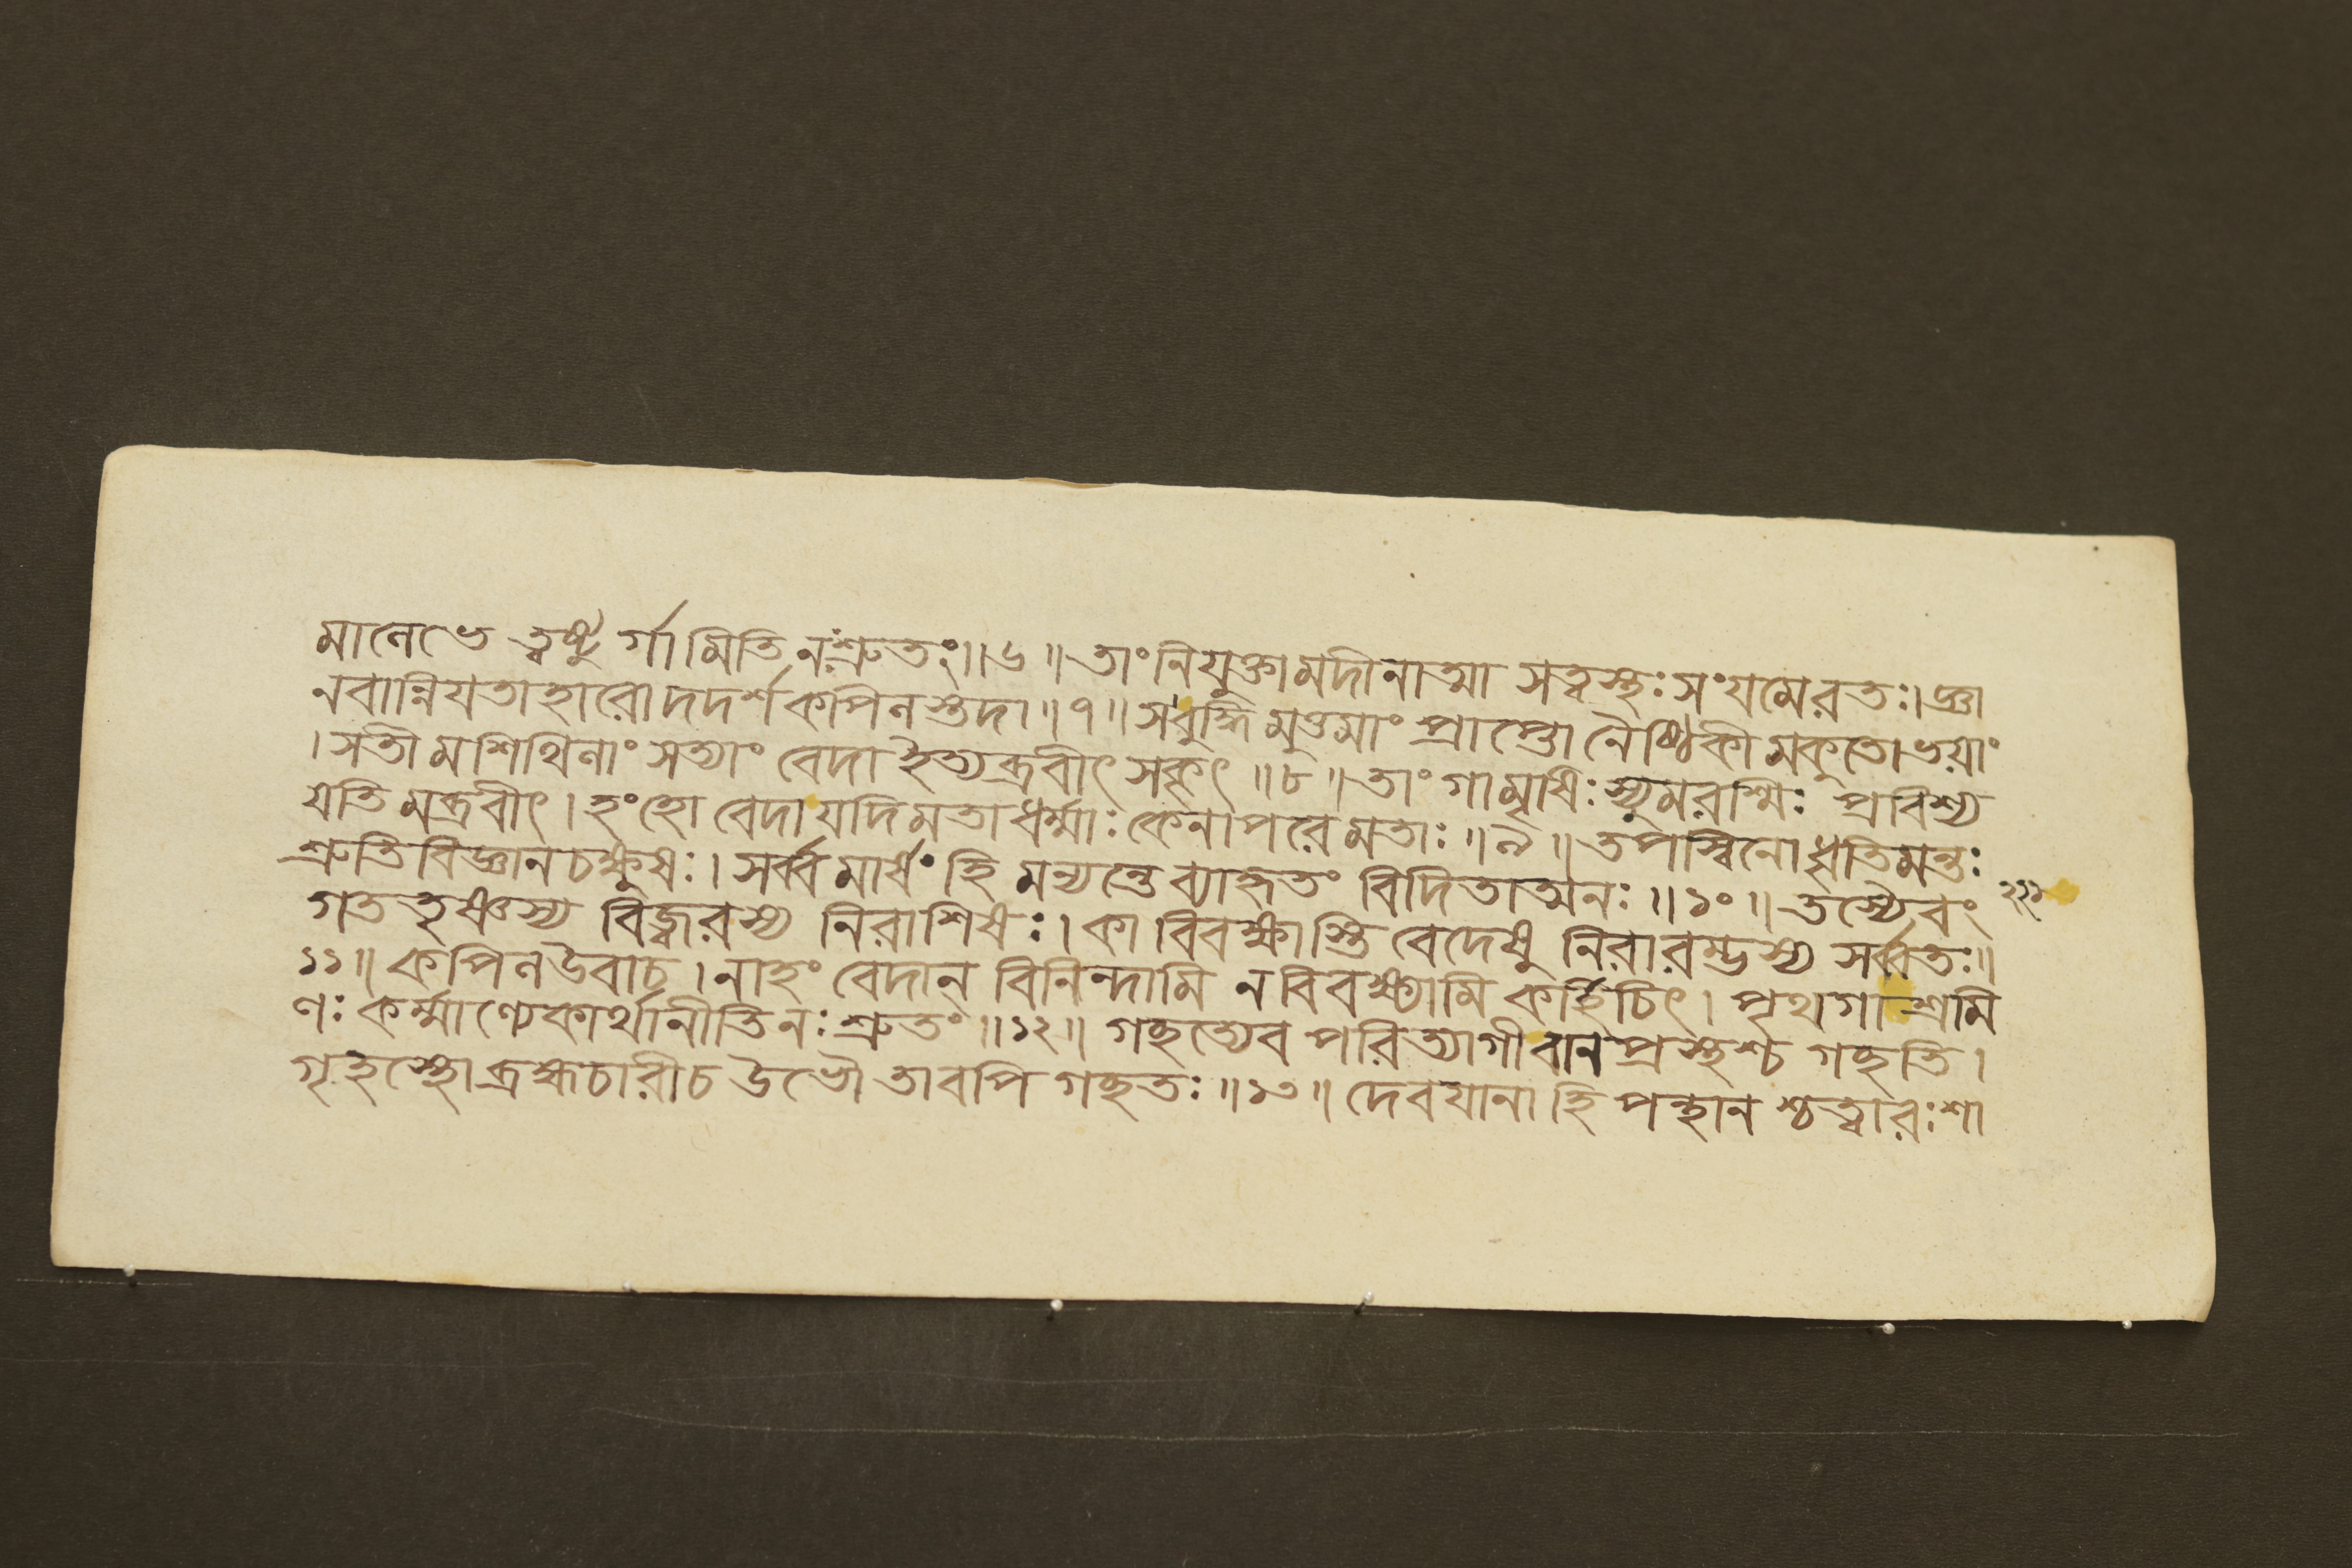 মানেভে ত্বষ্টুর্গামিতি নঃশ্রুতং॥৬॥ তাং নিযুক্তামদীনাত্মা সত্বস্থঃ সংযমেরতঃ। জ্ঞা
নবান্নিযতাহারোদদর্শকপিলস্তদা॥৭॥ সবুদ্ধিমুত্তমাং প্রাপ্তো নৈষ্ঠিকীমকুতোভয়াং
। সতীমশিথিলাং সত্যাং বেদা ইত্যব্রবীৎ সকৃৎ॥৮॥ তাং গামৃষিঃ স্যুমরশ্মিঃ প্রবিশ্য
যতিমব্রবীৎ। হংহো বেদা যদিমতাধর্ম্মাঃ কেনাপরেমতাঃ॥৯॥ তপস্বিনোধৃতিমন্তঃ
শ্রুতিবিজ্ঞানচক্ষুষঃ। সর্ব্বমার্ষং হি মন্যন্তে ব্যাহৃতং বিদিতাত্মনঃ॥১০॥ তস্যৈবং
গততৃষ্ণস্য বিজ্বরস্য নিরাশিষঃ। কা বিবক্ষাস্তি বেদেষু নিরারম্ভস্য সর্ব্বতঃ॥
১১॥ কপিলউবাচ। নাহং বেদান্ বিনিন্দামি ন বিবক্ষ্যামি কর্হিচিৎ। পৃথগাশ্রমি
ণঃ কর্ম্মাণ্যেকার্থানীতিনঃ শ্রুতং॥১২॥ গচ্ছত্যেব পরিত্যাগী বানপ্রস্থশ্চ গচ্ছতি।
গৃহস্থো ব্রহ্মচারীচ উভৌ তাবপি গচ্ছতঃ॥১৩॥ দেবযানা হি পন্থানশ্চত্বারঃশা